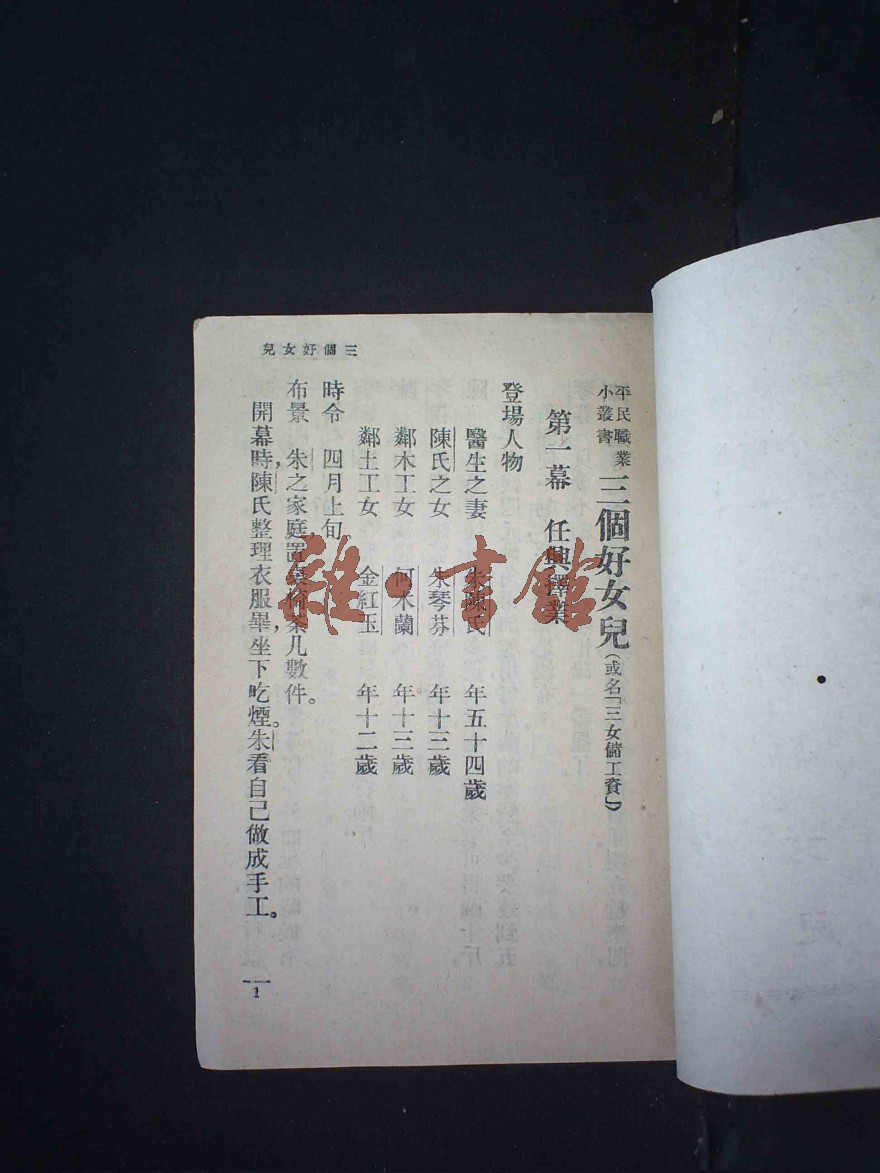 三個好女兒
平民職業
小叢書
三個好女兒(或名「三女儲工資」)
第一幕 任興擇業
登場人物
醫生之妻 朱陳氏 年五十四歲
陳氏之女 朱琴芬 年十三歲
鄰木工女 何木蘭 年十三歲
鄰土工女 金紅玉 年十二歲
時令 四月上旬。
布景 朱之家庭置桌椅茶几數件。
開幕時,陳氏整理衣服畢,坐下吃煙。朱看自己做成手工。
1
雜·書館